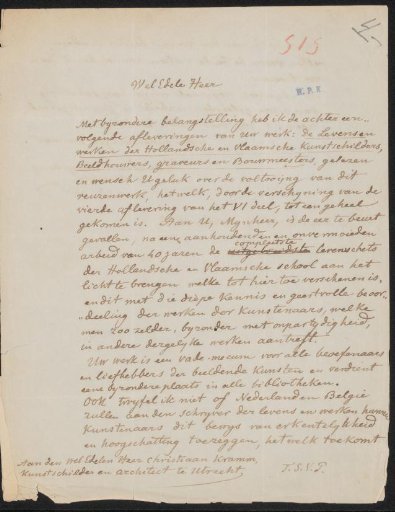 515
W.P.K.
Wel Edele Heer
Met byzondere belangstelling heb ik de achter een-
volgende afleveringen van Uw werk: de Levens en
werken der Hollandsche en Vlaamsche Kunstschilders,
Beeldhouwers, graveurs en Bouwmeesters, gelezen
en wensch U geluk over de voltooing van dit
reuzenwerk, hetwelk, door de verschyning van de
vierde aflevering van het VI deel, tot een geheel
gekomen is. Aan U, Mynheer, is de eer te beurt
gevallen, na eene aanhoudenden en onvermoeiden
compleetste
arbeid van 40 jaren de levensschets
der Hollandsche en Vlaamsche school aan het
licht te brengen welke tot hier toe verschenen is,
en dit met die diepe kennis en geestvolle beoor-
deeling der werken door Kunstenaars, welke
men zoo zelden, byzonder met onpartydigheid,
in andere dergelyke werken aantreft.
Uw werk is een vade mecum voor alle beoefenaars
en liefhebbers der beeldende Kunsten en verdient
eene byzondere plaats in alle bibliotheken.
Ook twyfel ik niet of Nederland en België
zullen aan den schryver der levens en werken hunner
Kunstenaars dit bewys van erkentelykheid
en hoogschatting toezeggen, hetwelk toekomt
Aan den Wel Edelen Heer Christiaan Kramm,
Kunstschilder en Architect te Utrecht,
T.S.V.P.